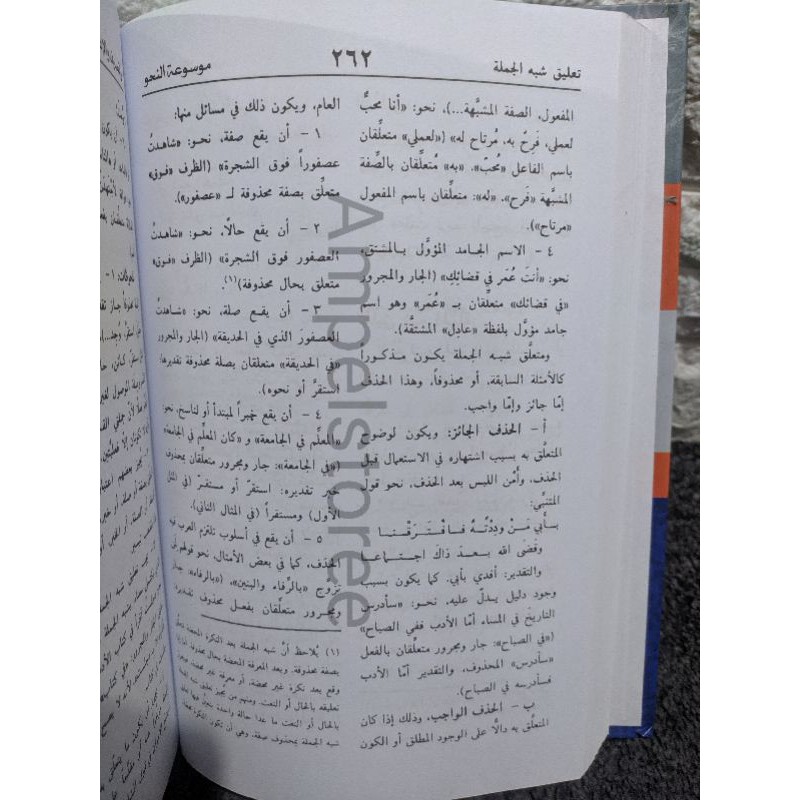 تعليق شبه الجملة
٢٦٢
موسوعة النحو
المفعول، الصفة المشبَّهة...)، نحو: «أنا محبٌّ
لعملي، فَرِحٌ به، مُرتاح له» («لعملي» متعلِّقان
باسم الفاعل «مُحبّ»، «به» مُتعلِّقان بالصِّفة
المشبَّهة «فَرِح»، «له»: متعلِّقان باسم المفعول
«مرتاح»).
٤ - الاسم الجامد المؤوَّل بالمشتق،
نحو: «أنتَ عُمَر في قضائكِ» (الجار والمجرور
«في قضائك» متعلِّقان بـ «عُمَر» وهو اسم
جامد مؤوَّل بلفظة «عادِل» المشتقَّة).
ومتعلَّق شبه الجملة يكون مذكوراً
كالأمثلة السابقة، أو محذوفاً، وهذا الحذف
إمّا جائز وإمّا واجب.
أ - الحذف الجائز: ويكون لوضوح
المتعلَّق به بسبب اشتهاره في الاستعمال قبل
الحذف، وأَمْن اللبس بعد الحذف، نحو قول
المتنبِّي:
بأبي مَنْ وَدِدْتُهُ فافْتَرَقْنا
وقَضَى الله بعد ذاكَ اجتماعا
والتقدير: أفدي بأبي. كما يكون بسبب
وجود دليل يدلّ عليه، نحو: «سأدرس
التاريخَ في المساء أمّا الأدب ففي الصباح»
(«في الصباح»: جار ومجرور متعلِّقان بالفعل
«سأدرس» المحذوف، والتقدير أمّا الأدب
فسأدرسه في الصباح).
ب - الحذف الواجب، وذلك إذا كان
المتعلَّق به دالًّا على الوجود المطلق أو الكون
العام، ويكون ذلك في مسائل منها:
١ - أن يقع صفة، نحو: «شاهدتُ
عصفوراً فوق الشجرة» (الظرف «فوق»
متعلِّق بصفة محذوفة لـ «عصفور»).
٢ - أن يقع حالًا، نحو: «شاهدتُ
العصفور فوق الشجرة» (الظرف «فوق»
متعلق بحال محذوفة)(١).
٣ - أن يقع صلة، نحو: «شاهدتُ
العصفورَ الذي في الحديقة» (الجار والمجرور
«في الحديقة» متعلقان بصلة محذوفة تقديرها
استقرَّ أو نحوه).
٤ - أن يقع خبراً لمبتدأ أو لناسخ، نحو:
«المعلِّم في الجامعة» و «كان المعلِّم في الجامعة»
(«في الجامعة»: جار ومجرور متعلِّقان بمحذوف
خبر تقديره: استقرّ أو مستقرّ (في المثل
الأول) ومستقراً (في المثال الثاني).
٥ - أن يقع في أسلوب تلتزم العرب فيه
الحذف، كما في بعض الأمثال، نحو قولهم لمن
تزوج «بالرِّفاء والبنين»، («بالرفاء» جار
ومجرور متعلِّقان بفعل محذوف تقديره:
(١) يُلاحظ أنّ شبه الجملة بعد النكرة المحضة يتعلق
بصفة محذوفة، وبعد المعرفة المحضة بحال محذوفة،
وقع بعد نكرة غير محضة، أو معرفة غير محضة،
تعليقه بالحال أو النعت. ومنهم من يُجيز تعليق شبه
بالحال أو النعت ما عدا حالة واحدة
شبه الجملة بمحذوف صفة، وهي أن تكون النكرة
Ampelstoree